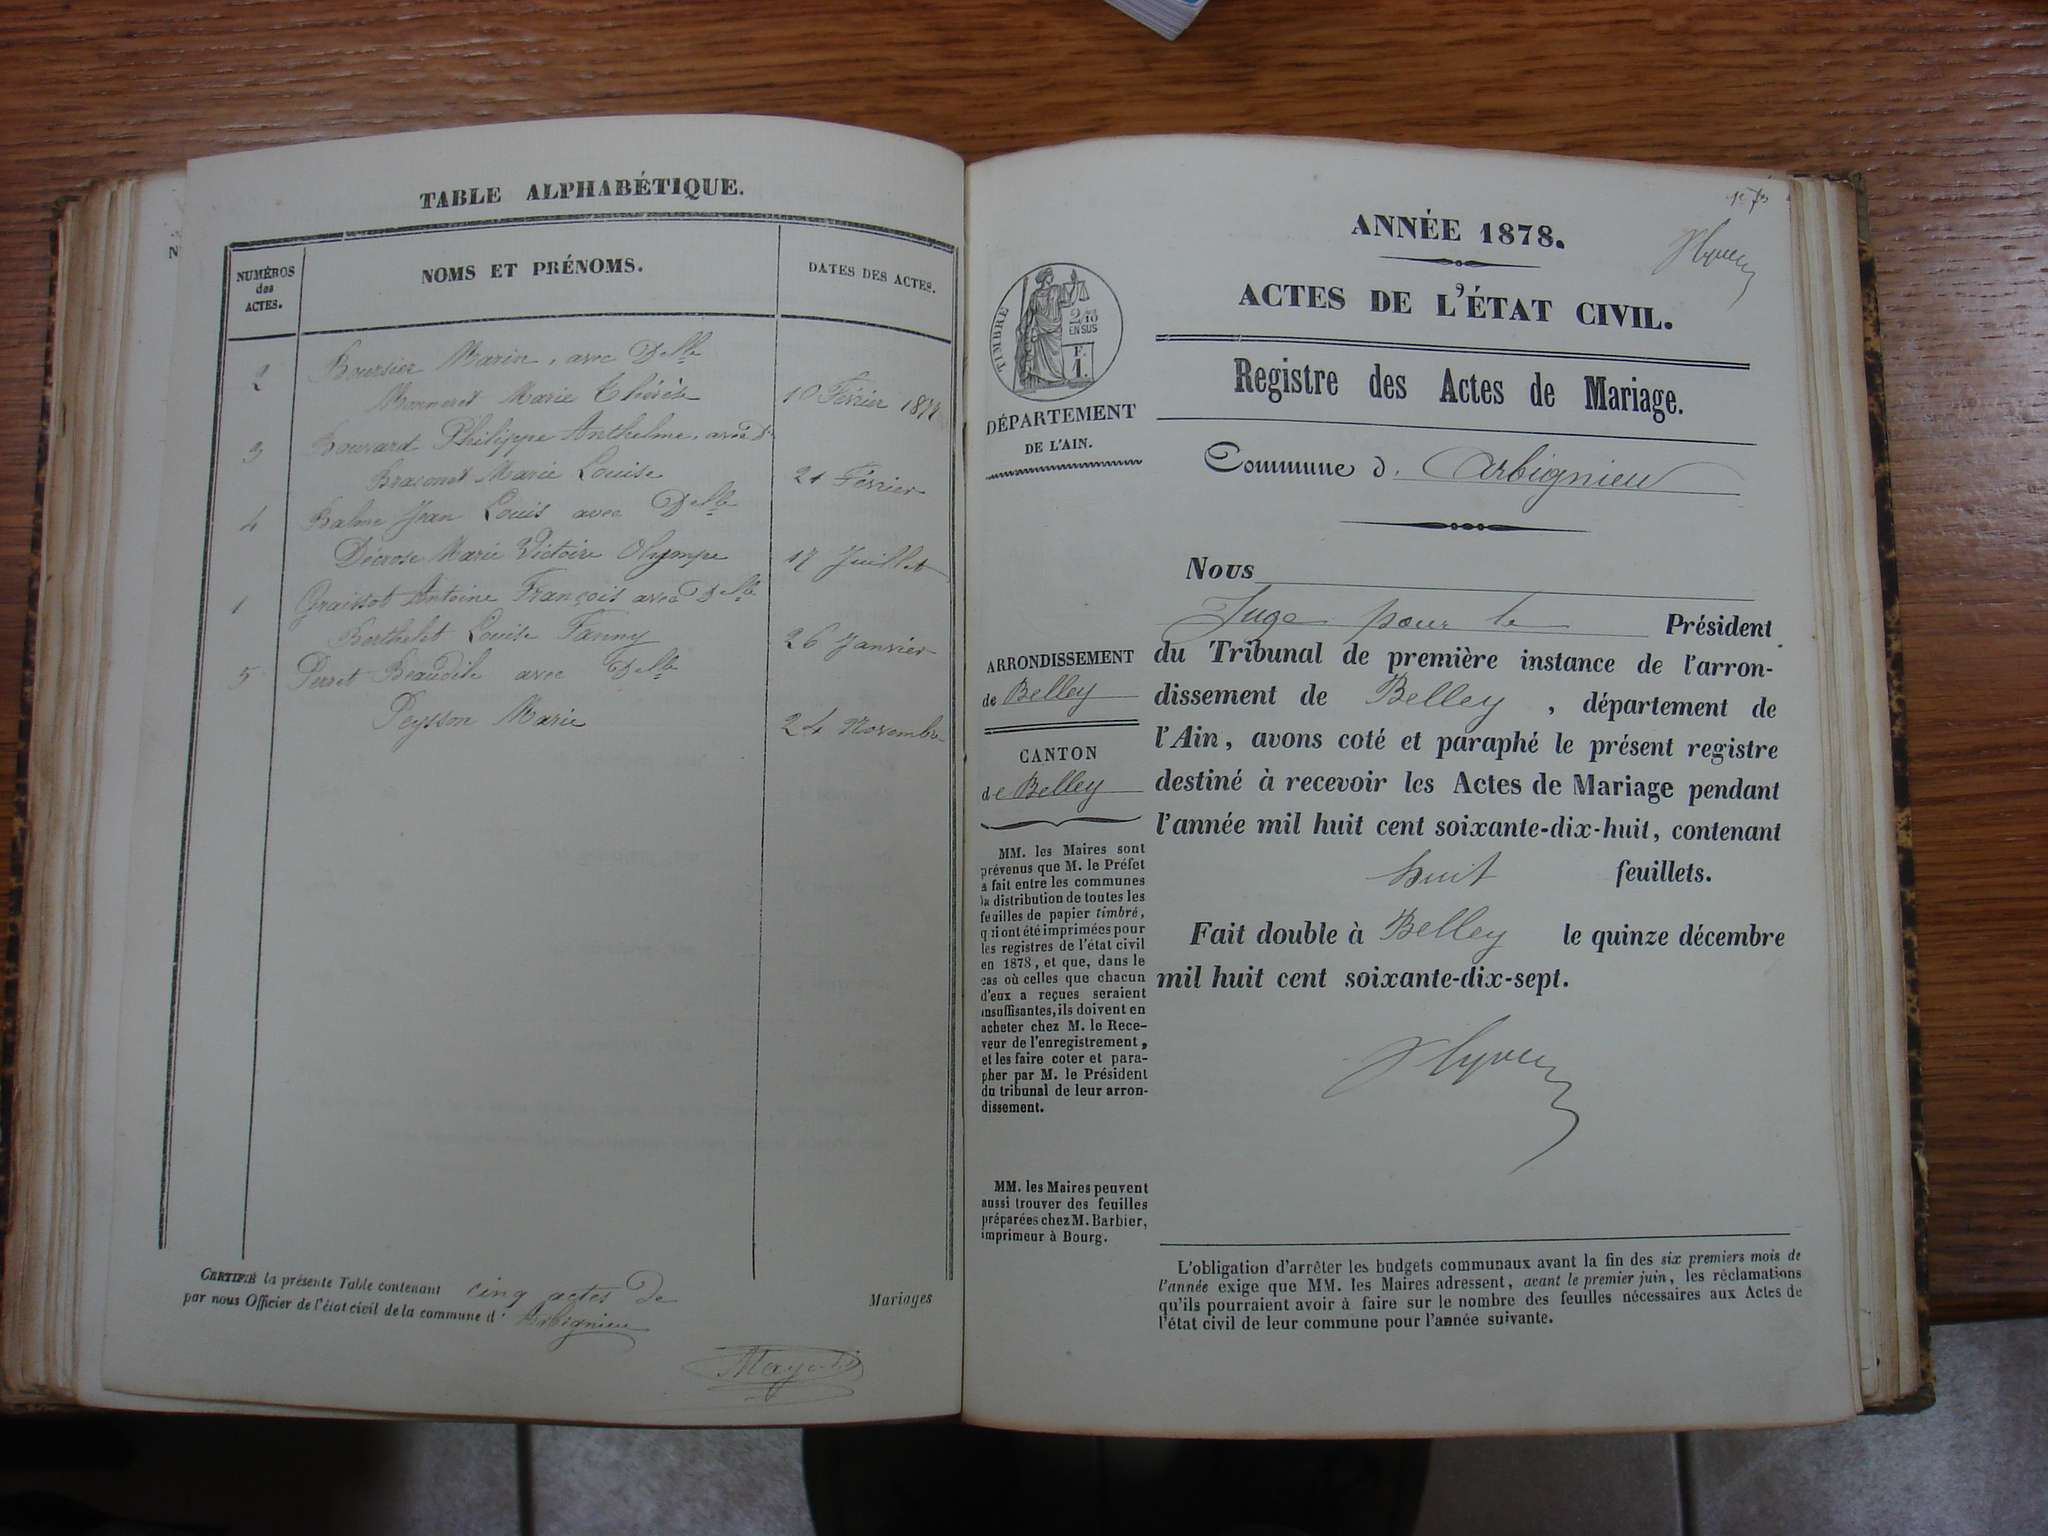 TABLE ALPHABÉTIQUE.
NUMÉROS
des
ACTES.
NOMS ET PRÉNOMS.
DATES DES ACTES.
2 Boursier Marin, avec Delle
Monneret Marie Thérèse 10 Février
3 Bouvard Philippe Anthelme, avec
Marie Louise 21 Février
4 Balme Jean Louis avec Delle
Décrose Marie Victoire Olympe 17 Juillet
1 Graissot Antoine François avec Delle
Berthelet Louise Fanny 26 Janvier
5 Perret Beaudile avec Delle
Peysson Marie 24 Novembre
CERTIFIÉ la présente Table contenant cinq actes de Mariages
par nous Officier de l'état civil de la commune d' Arbignieu
ANNÉE 1878.
ACTES DE L'ÉTAT CIVIL.
Registre des Actes de Mariage.
Commune d. Arbignieu
TIMBRE
2/10
EN SUS
F.
1.
DÉPARTEMENT
DE L'AIN.
ARRONDISSEMENT
de Belley
CANTON
de Belley
MM. les Maires sont
prévenus que M. le Préfet
a fait entre les communes
la distribution de toutes les
feuilles de papier timbré,
qui ont été imprimées pour
les registres de l'état civil
en 1878, et que, dans le
cas où celles que chacun
d'eux a reçues seraient
insuffisantes, ils doivent en
acheter chez M. le Rece-
veur de l'enregistrement,
et les faire coter et para-
pher par M. le Président
du tribunal de leur arron-
dissement.
MM. les Maires peuvent
aussi trouver des feuilles
préparées chez M. Barbier,
imprimeur à Bourg.
Nous
Juge pour le Président
du Tribunal de première instance de l'arron-
dissement de Belley, département de
l'Ain, avons coté et paraphé le présent registre
destiné à recevoir les Actes de Mariage pendant
l'année mil huit cent soixante-dix-huit, contenant
huit feuillets.
Fait double à Belley le quinze décembre
mil huit cent soixante-dix-sept.
L'obligation d'arrêter les budgets communaux avant la fin des six premiers mois de
l'année exige que MM. les Maires adressent, avant le premier juin, les réclamations
qu'ils pourraient avoir à faire sur le nombre des feuilles nécessaires aux Actes de
l'état civil de leur commune pour l'année suivante.